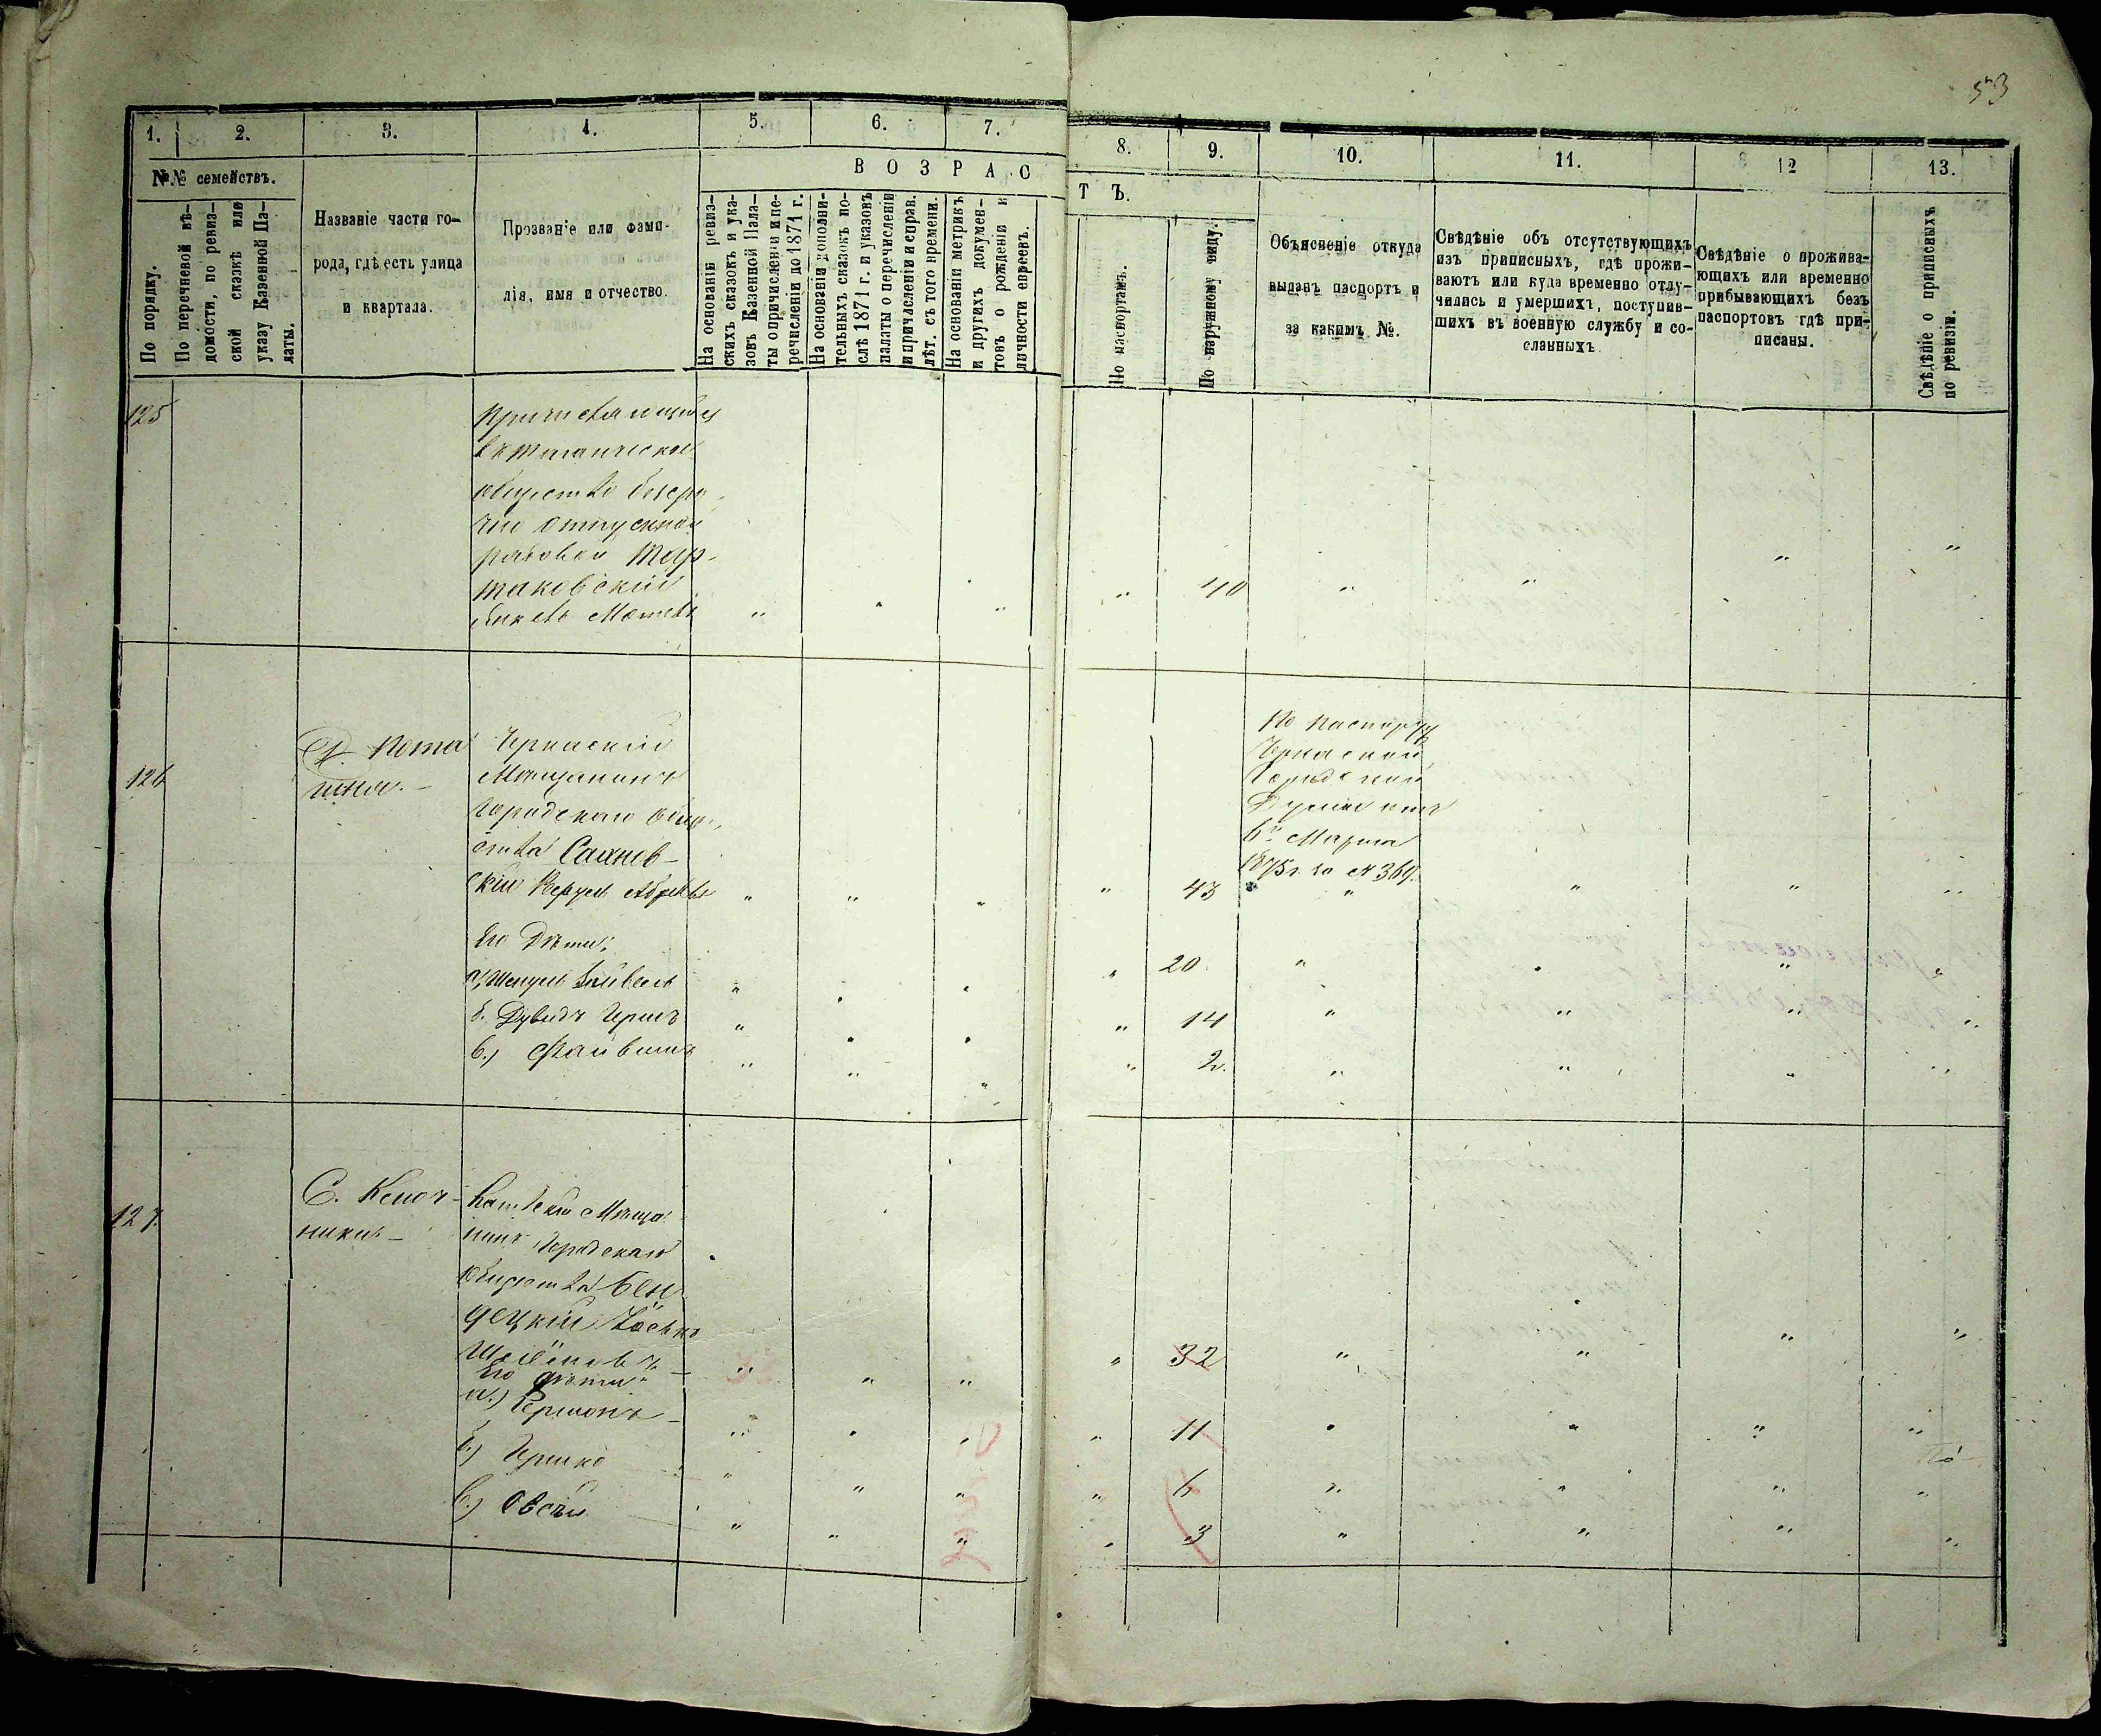 53
1. 2. 3. 4. 5. 6. 7. 8. 9. 10. 11. 12 13.
№№ семействъ.
ВОЗРАСТЪ.
По порядку.
По перечневой вѣ-
домости, по ревиз-
ской сказкѣ или
указу Казенной Па-
латы.
Названіе части го-
рода, гдѣ есть улица
и квартала.
Прозваніе или фами-
лія, имя и отчество.
На основаніи ревиз-
скихъ сказокъ и ука-
зовъ Казенной Пала-
ты о причисленіи и пе-
речисленіи до 1871 г.
На основаніи дополни-
тельныхъ сказокъ по-
слѣ 1871 г. и указовъ
палаты о перечисленіи
и причисленіи и справ.
лѣт. съ того времени.
На основаніи метрикъ
и другихъ докумен-
товъ о рожденіи и
личности евреевъ.
По паспортамъ.
По наружному виду.
Объясненіе откуда
выданъ паспортъ и
за какимъ №.
Свѣдѣніе объ отсутствующихъ
изъ приписныхъ, гдѣ прожи-
ваютъ или куда временно отлу-
чились и умершихъ, поступив-
шихъ въ военную службу и со-
сланныхъ
Свѣдѣніе о прожива-
ющихъ или временно
прибывающихъ безъ
паспортовъ гдѣ при-
писаны.
Свѣдѣніе о приписныхъ
по ревизіи.
125
общество безсро
чно отпускной
рядовой Тар-
таковскій
" " " " 40 " " " "
126
Д. Пота
пня.
Черкаскій
Мѣщанинъ
Городскаго Обще
ства Саянов-
скій
По паспорту
Черкаской
Городской
Думы отъ
6го Марта
1875 г. за № 369.
" " " " 43 " " " "
Его Дѣти:
" " " " 20 " " " "
б. Дувидъ Гершъ " " " " 14 " " " "
в.) Файвишъ " " " " 2. " " " "
127.
С. Ключ-
ники
Мѣща
нинъ Городскаго
Общества Бен
децкій
" " " " 32 " " " "
Его дѣти
а.) Гершонъ " " " " 11 " " " "
б.) Гершко " " " " 6 " " " "
в.) Овсѣй " " " " 3 " " " "